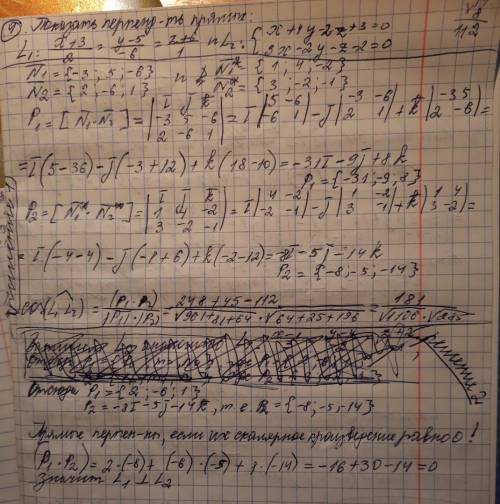 9) Показать перпенд-ть прямых:
L₁: (x+3)/2 = (y-5)/-6 = (z+6)/1 и L₂: { x+4y-2z+3=0
3x-2y-z-2=0
√8
112
N̄₁ = {-3; 5; -6} и N̄₁* = {1, 4, -2}
N̄₂ = {2, -6; 1} N̄₂* = {3, -2; -1}
P₁ = [N̄₁·N̄₂] = |ī j̄ k̄; -3 5 -6; 2 -6 1| = ī|5 -6; -6 1| - j̄|-3 -6; 2 1| + k̄|-3 5; 2 -6| =
= ī(5-36) - j̄(-3+12) + k(18-10) = -31ī - 9j̄ + 8k
P₁ = {-31; -9; 8}
P₂ = [N̄₁*·N̄₂*] = |ī j̄ k̄; 1 4 -2; 3 -2 -1| = ī|4 -2; -2 -1| - j̄|1 -2; 3 -1| + k̄|1 4; 3 -2| =
= ī(-4-4) - j̄(-1+6) + k(-2-12) = -8ī - 5j - 14k
P₂ = {-8; -5; -14}
cos(L₁^L₂) = (P₁·P₂)/(|P₁|·|P₂|) = (248+45-112)/(√961+81+64 · √64+25+196) = 181/(√1106 · √285)
Отсюда P₁ = {2; -6; 1}
P₂ = -8ī - 5j - 14k, т.е. P₂ = {-8; -5; -14}
Прямые перпен-ны, если их скалярное произведение равно 0!
(P₁·P₂) = 2·(-8) + (-6)·(-5) + 1·(-14) = -16+30-14 = 0
Значит L₁ ⊥ L₂
решение 2